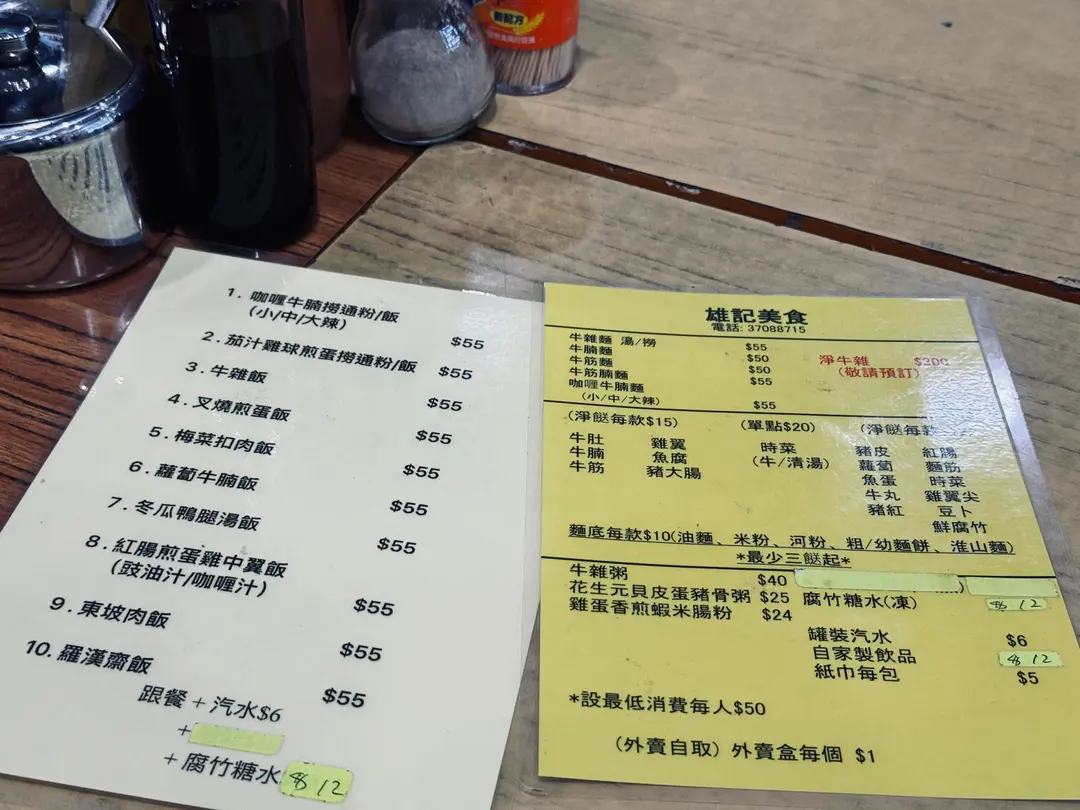 新配方
1. 咖喱牛腩撈通粉/飯
(小/中/大辣) $55
2. 茄汁雞球煎蛋撈通粉/飯 $55
3. 牛雜飯 $55
4. 叉燒煎蛋飯 $55
5. 梅菜扣肉飯 $55
6. 蘿蔔牛腩飯 $55
7. 冬瓜鴨腿湯飯 $55
8. 紅腸煎蛋雞中翼飯
(豉油汁/咖喱汁) $55
9. 東坡肉飯 $55
10. 羅漢齋飯 $55
跟餐 + 汽水$6
+
+ 腐竹糖水 $12
雄記美食
電話: 37088715
牛雜麵 湯/撈 $55
牛腩麵 $50
牛筋麵 $50
牛筋腩麵 $55
咖喱牛腩麵
(小/中/大辣) $55
淨牛雜 $300
(敬請預訂)
(淨餸每款$15) (單點$20) (淨餸每款
牛肚 雞翼 時菜 豬皮 紅腸
牛腩 魚腐 (牛/清湯) 蘿蔔 麵筋
牛筋 豬大腸 魚蛋 時菜
牛丸 雞翼尖
豬紅 豆卜
鮮腐竹
麵底每款$10(油麵、米粉、河粉、粗/幼麵餅、淮山麵)
*最少三餸起*
牛雜粥 $40
花生元貝皮蛋豬骨粥 $25 腐竹糖水(凍) $12
雞蛋香煎蝦米腸粉 $24
罐裝汽水 $6
自家製飲品 $12
紙巾每包 $5
*設最低消費每人$50
(外賣自取) 外賣盒每個 $1